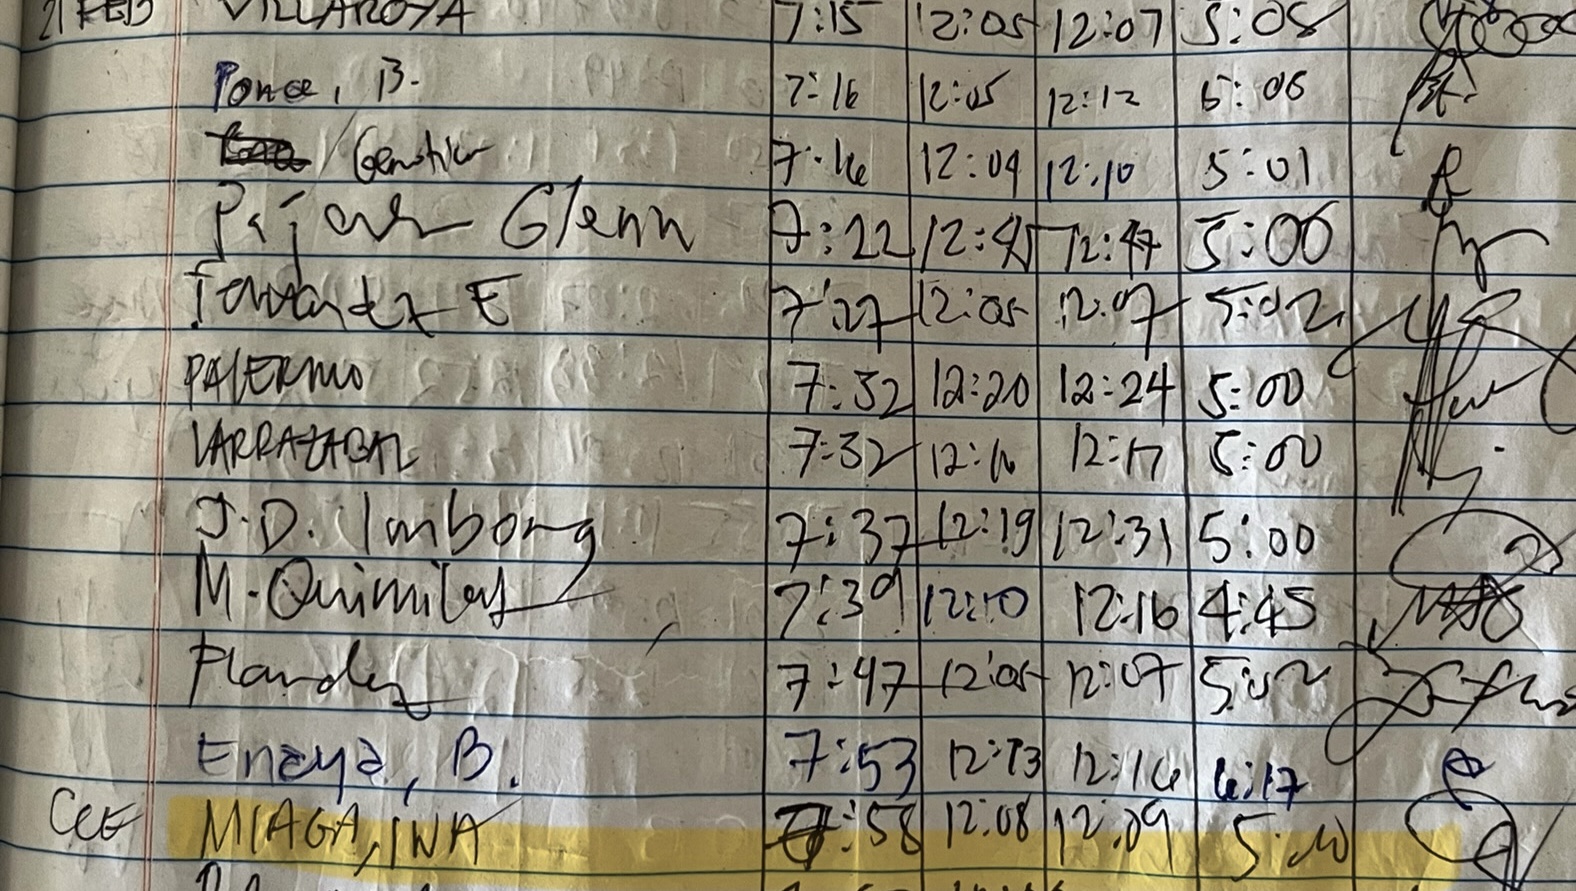 21 FEB VILLAROYA 7:15 12:05 12:07 5:05
Ponce, B. 7:16 12:05 12:12 5:06
7:16 12:04 12:10 5:01
Glenn 7:22 12:45 12:47 5:00
E 7:27 12:05 12:07 5:02
PALERMO 7:32 12:20 12:24 5:00
LARRAZABAL 7:32 12:16 12:17 5:00
J.D. Imbong 7:37 12:19 12:31 5:00
M. 7:39 12:10 12:16 4:45
7:47 12:05 12:07 5:02
Enaya, B. 7:53 12:13 12:16 6:17
MIAGA, INA :58 12:08 12:09 5:10